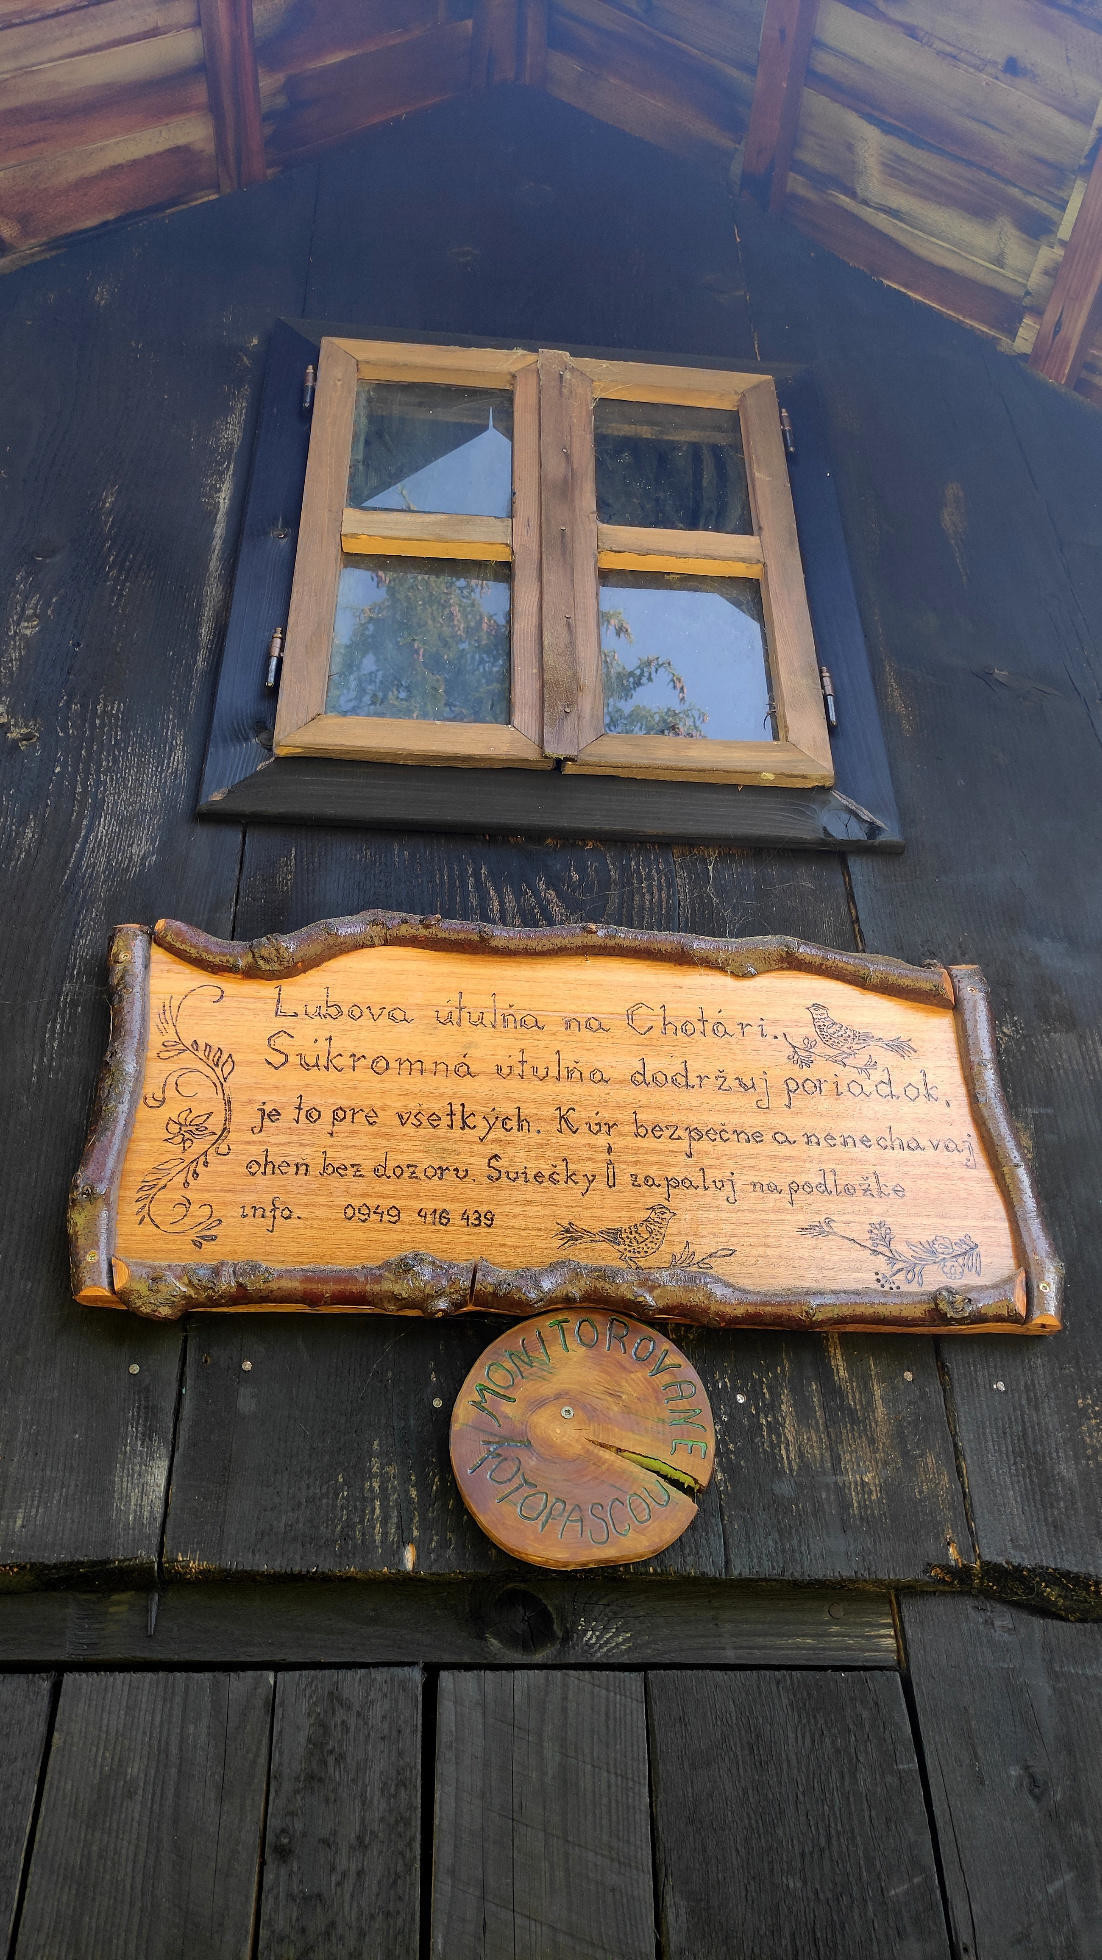 Lubova útulňa na Chotári.
Súkromná útulňa dodržuj poriadok,
je to pre všetkých. Kúr bezpečne a nenechavaj
oheň bez dozoru. Sviečky zapaluj na podložke
info. 0949 416 439
MONITOROVANE
FOTOPASCOU